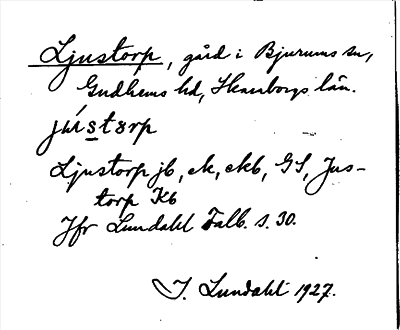 Ljustorp, gård i Bjurums sn,
Gudhems hd, Skaraborgs län.
jústorp
Ljustorp jb, ek, ekb, GS, Jus-
torp Kb
Jfr Lundahl Falb. s. 30.
I. Lundahl 1927.